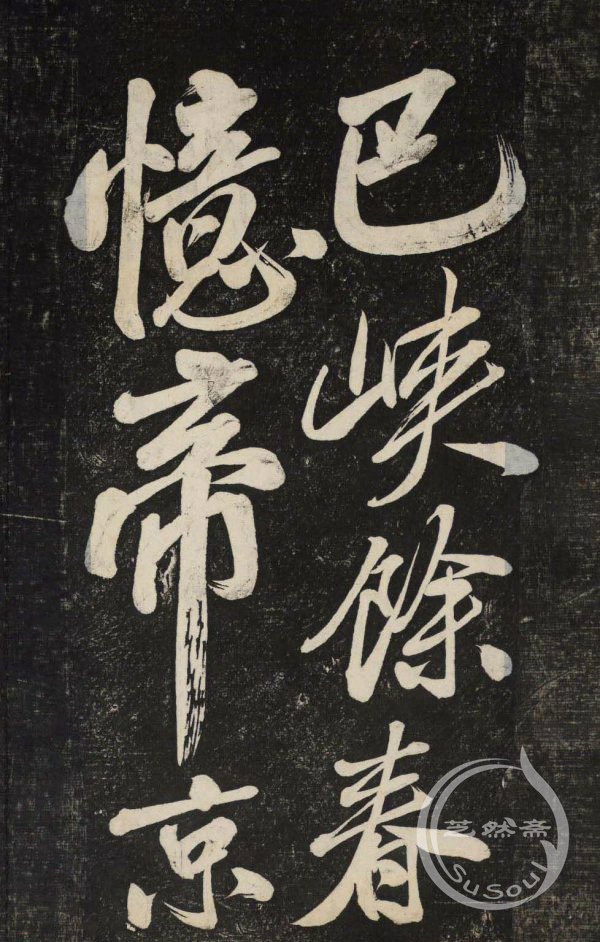 巴峽餘春
憶帝京
芝然斋
SuSoul